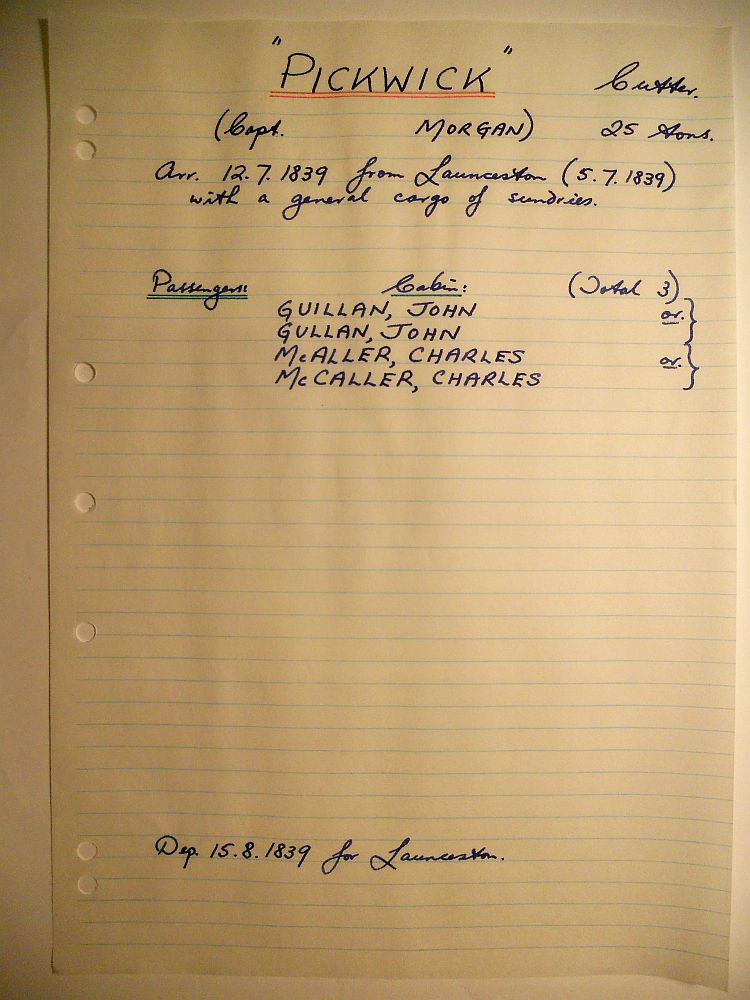 "PICKWICK" Cutter.
(Capt. MORGAN) 25 tons.
Arr. 12.7.1839 from Launceston (5.7.1839)
with a general cargo of sundries.
Passengers: Cabin: (Total 3)
GUILLAN, JOHN or. }
GULLAN, JOHN
McALLER, CHARLES or. }
McCALLER, CHARLES
Dep. 15.8.1839 for Launceston.